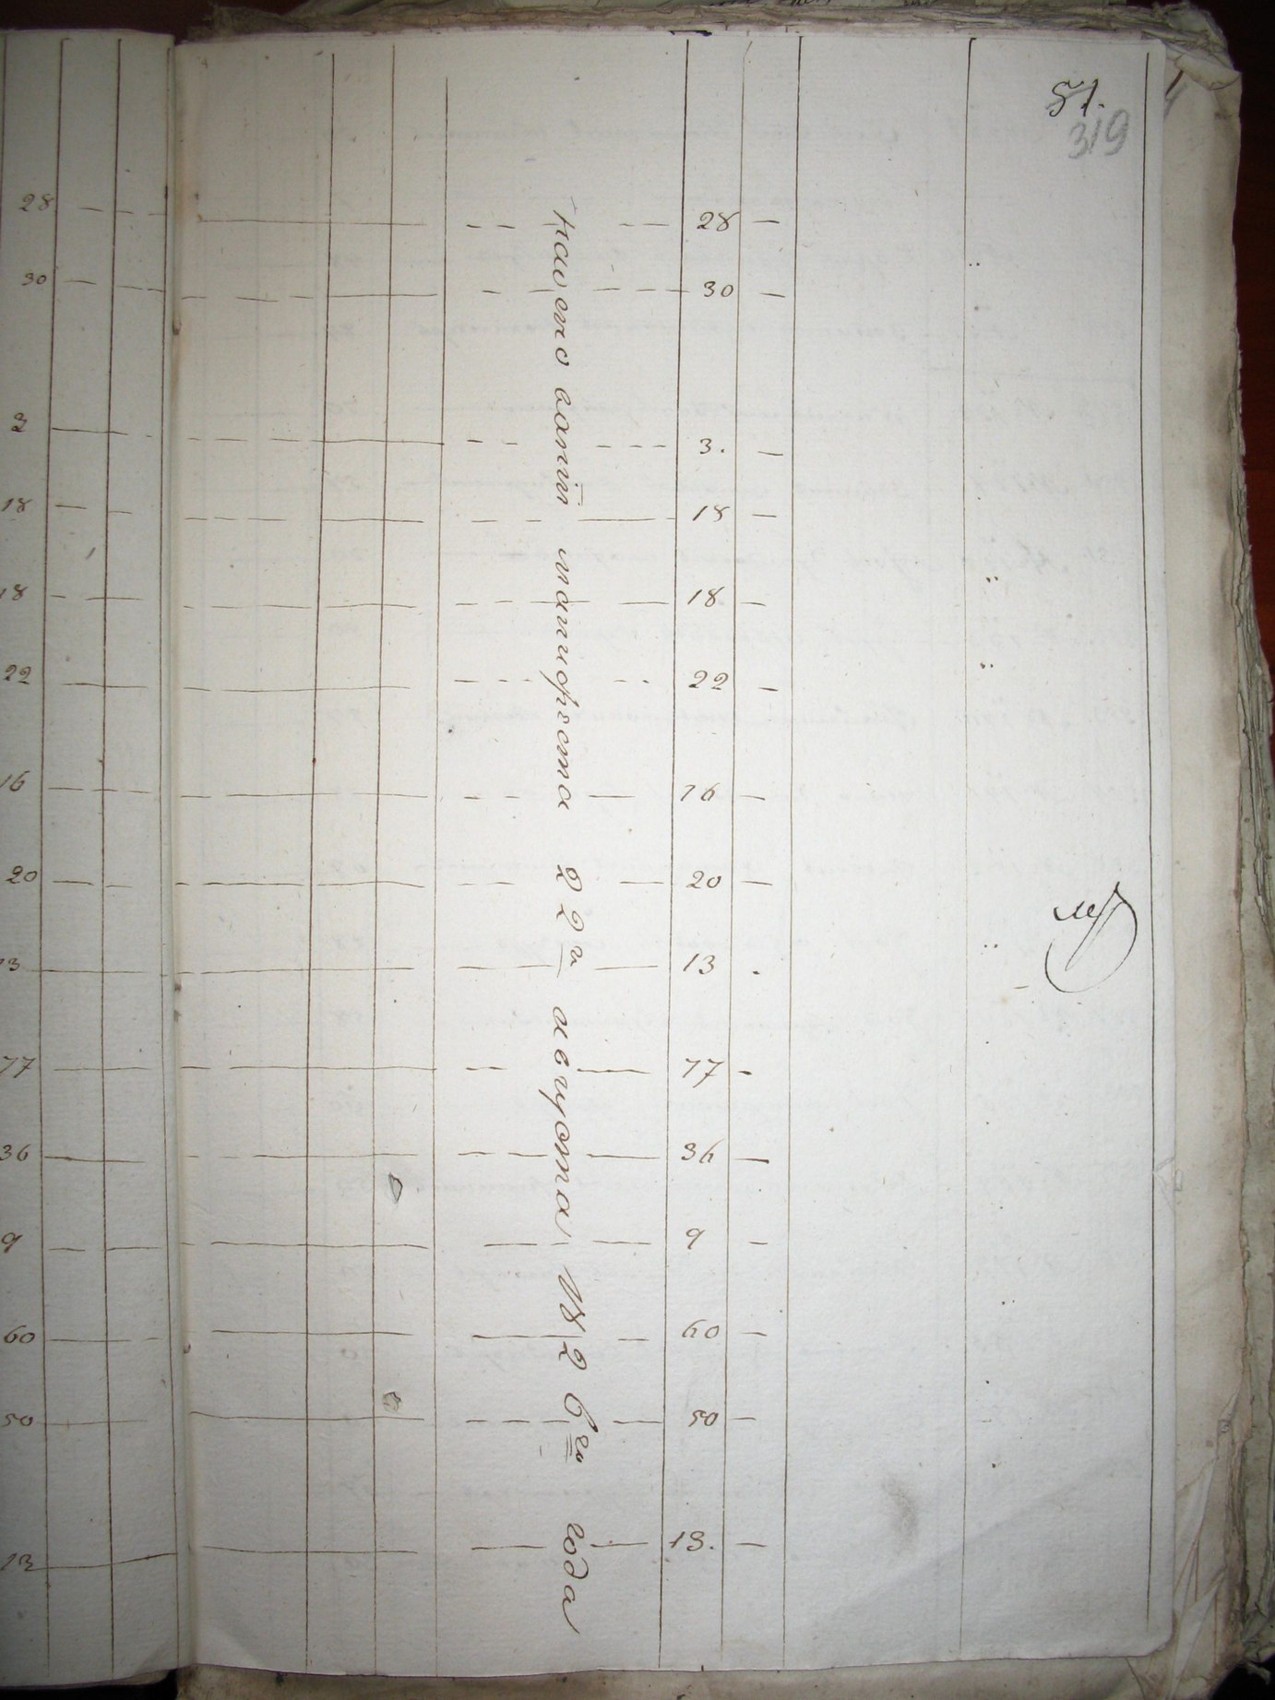 28
30
3
18
18
22
16
20
13
77
36
9
60
50
13
51.
319
на осно ваніи манифеста 22г августа 1826го года
28 —
30 —
3. —
18 —
18 —
22 —
16 —
20 —
13 -
77 -
36 —
9 —
60 —
50 —
13. —